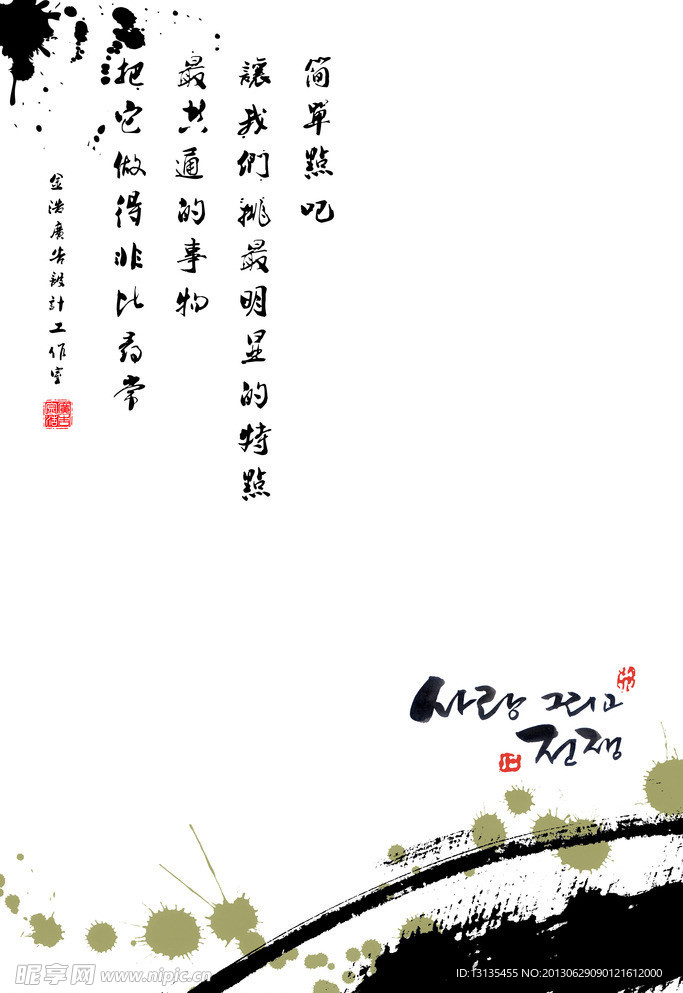 简單點吧
讓我們挑最明显的特點
最共通的事物
把它做得非比尋常
金浩廣告設計工作室
사랑 그리고
전쟁
昵享网 www.nipic.cn
ID:13135455 NO:20130629090121612000